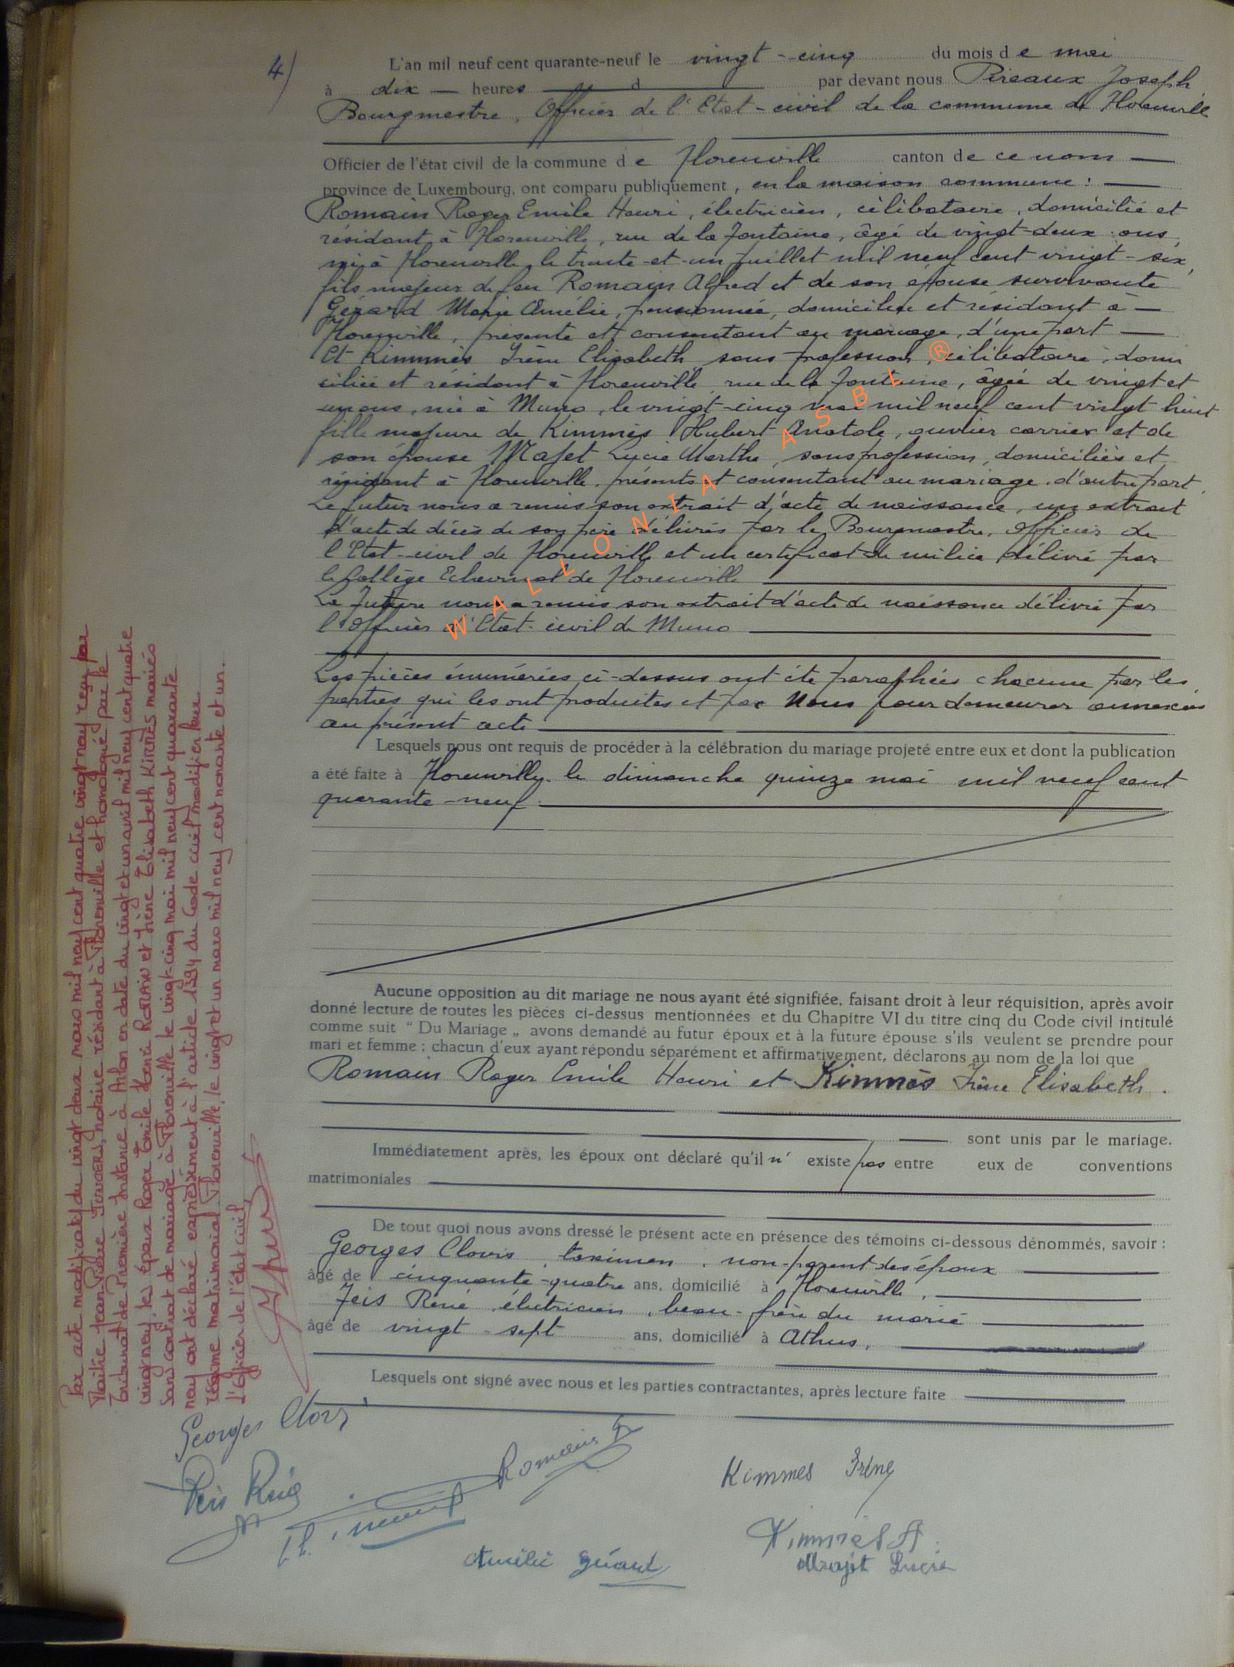 4)
L'an mil neuf cent quarante-neuf le vingt-cinq du mois de mai
à dix heures d par devant nous Joseph
Bourgmestre, Officier de l'Etat-civil de la commune de Florenville
Officier de l'état civil de la commune de Florenville canton de ce nom
province de Luxembourg, ont comparu publiquement, en la maison commune :
Romain Roger Emile Henri, électricien, célibataire, domicilié et
résidant à Florenville, rue de la Fontaine, âgé de vingt-deux ans,
né à Florenville, le trente-et-un juillet mil neuf cent vingt-six,
fils majeur de feu Romain Alfred et de son épouse survivante
Gérard Marie Amélie, pensionnée, domiciliée et résidant à
Florenville, présente et consentant au mariage, d'une part
Et Kimmès Irène Elisabeth sans profession, célibataire, domi
ciliée et résidant à Florenville rue de la Fontaine, âgée de vingt et
un ans, née à Muno, le vingt-cinq mai mil neuf cent vingt huit
fille majeure de Kimmès Hubert Anatole, ouvrier carrier et de
son épouse Majet Lucie Marthe, sans profession, domiciliés et
résidant à Florenville, présents et consentant au mariage, d'autre part.
Le futur nous a remis son extrait d'acte de naissance, un extrait
d'acte de décès de son père délivrés par le Bourgmestre, Officier de
l'Etat-civil de Florenville et un certificat de milice délivré par
le Collège Echevinal de Florenville
La future nous a remis son extrait d'acte de naissance délivré par
l'Officier d'Etat-civil de Muno
Les pièces énumérées ci-dessus ont été paraphées chacune par les
parties qui les ont produites et par Nous pour demeurer annexées
au présent acte
Lesquels nous ont requis de procéder à la célébration du mariage projeté entre eux et dont la publication
a été faite à Florenville, le dimanche quinze mai mil neuf cent
quarante-neuf.
Aucune opposition au dit mariage ne nous ayant été signifiée, faisant droit à leur réquisition, après avoir
donné lecture de toutes les pièces ci-dessus mentionnées et du Chapitre VI du titre cinq du Code civil intitulé
comme suit " Du Mariage „ avons demandé au futur époux et à la future épouse s'ils veulent se prendre pour
mari et femme ; chacun d'eux ayant répondu séparément et affirmativement, déclarons au nom de la loi que
Romain Roger Emile Henri et Kimmès Irène Elisabeth.
sont unis par le mariage.
Immédiatement après, les époux ont déclaré qu'il n' existe pas entre eux de conventions
matrimoniales
De tout quoi nous avons dressé le présent acte en présence des témoins ci-dessous dénommés, savoir :
Georges Clovis, taximen, non-parent des époux
âgé de cinquante-quatre ans, domicilié à Florenville,
Jeis René électricien, beau-frère du marié
âgé de vingt-sept ans, domicilié à Athus,
Lesquels ont signé avec nous et les parties contractantes, après lecture faite
Par acte modificatif du vingt deux mars mil neuf cent quatre vingt neuf reçu par
Maître Jean-Pierre, notaire résidant à Florenville et homologué par le
Tribunal de Première Instance à Arlon en date du vingt et un avril mil neuf cent quatre
vingt neuf, les époux Roger Emile Henri ROMAIN et Irène Elisabeth KIMMES mariés
sans contrat de mariage à Florenville le vingt-cinq mai mil neuf cent quarante
neuf ont déclaré expressément à l'article 1394 du Code civil modifier leur
régime matrimonial. Florenville, le vingt et un mars mil neuf cent nonante et un.
L'officier de l'état civil,
Georges Clovis
Romain R
Kimmes Irène
Kimmès A
Amélie Gérard
Majet Lucie
WALLONIA ASBL ®